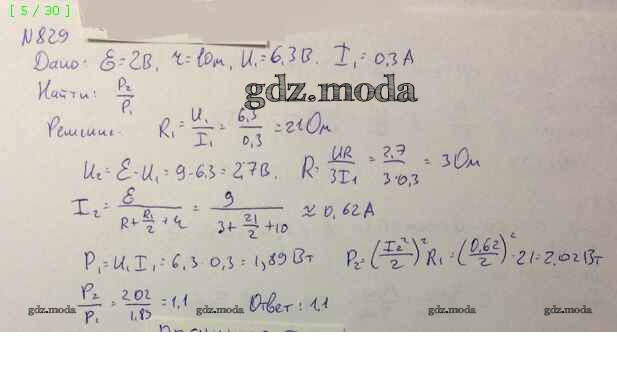 [ 5 / 30 ]
№829
Дано: Ɛ=2В, r=10м, U₁=6,3В. I₁=0,3А
Найти: P₂/P₁
gdz.moda
Решение. R₁=U₁/I₁=6,3/0,3=21Ом
U₂=Ɛ-U₁=9-6.3=2,7В. R=UR/3I₁=2,7/3·0,3=3Ом
I₂=Ɛ/(R+R₁/2+r)=9/(3+21/2+10)≈0,62А
P₁=U₁I₁=6,3·0,3=1,89Вт P₂=(I₂²/2)²R₁=(0,62/2)²·21=2,02Вт
P₂/P₁=2,02/1,89=1,1 Ответ: 1,1
gdz.moda gdz.moda gdz.moda